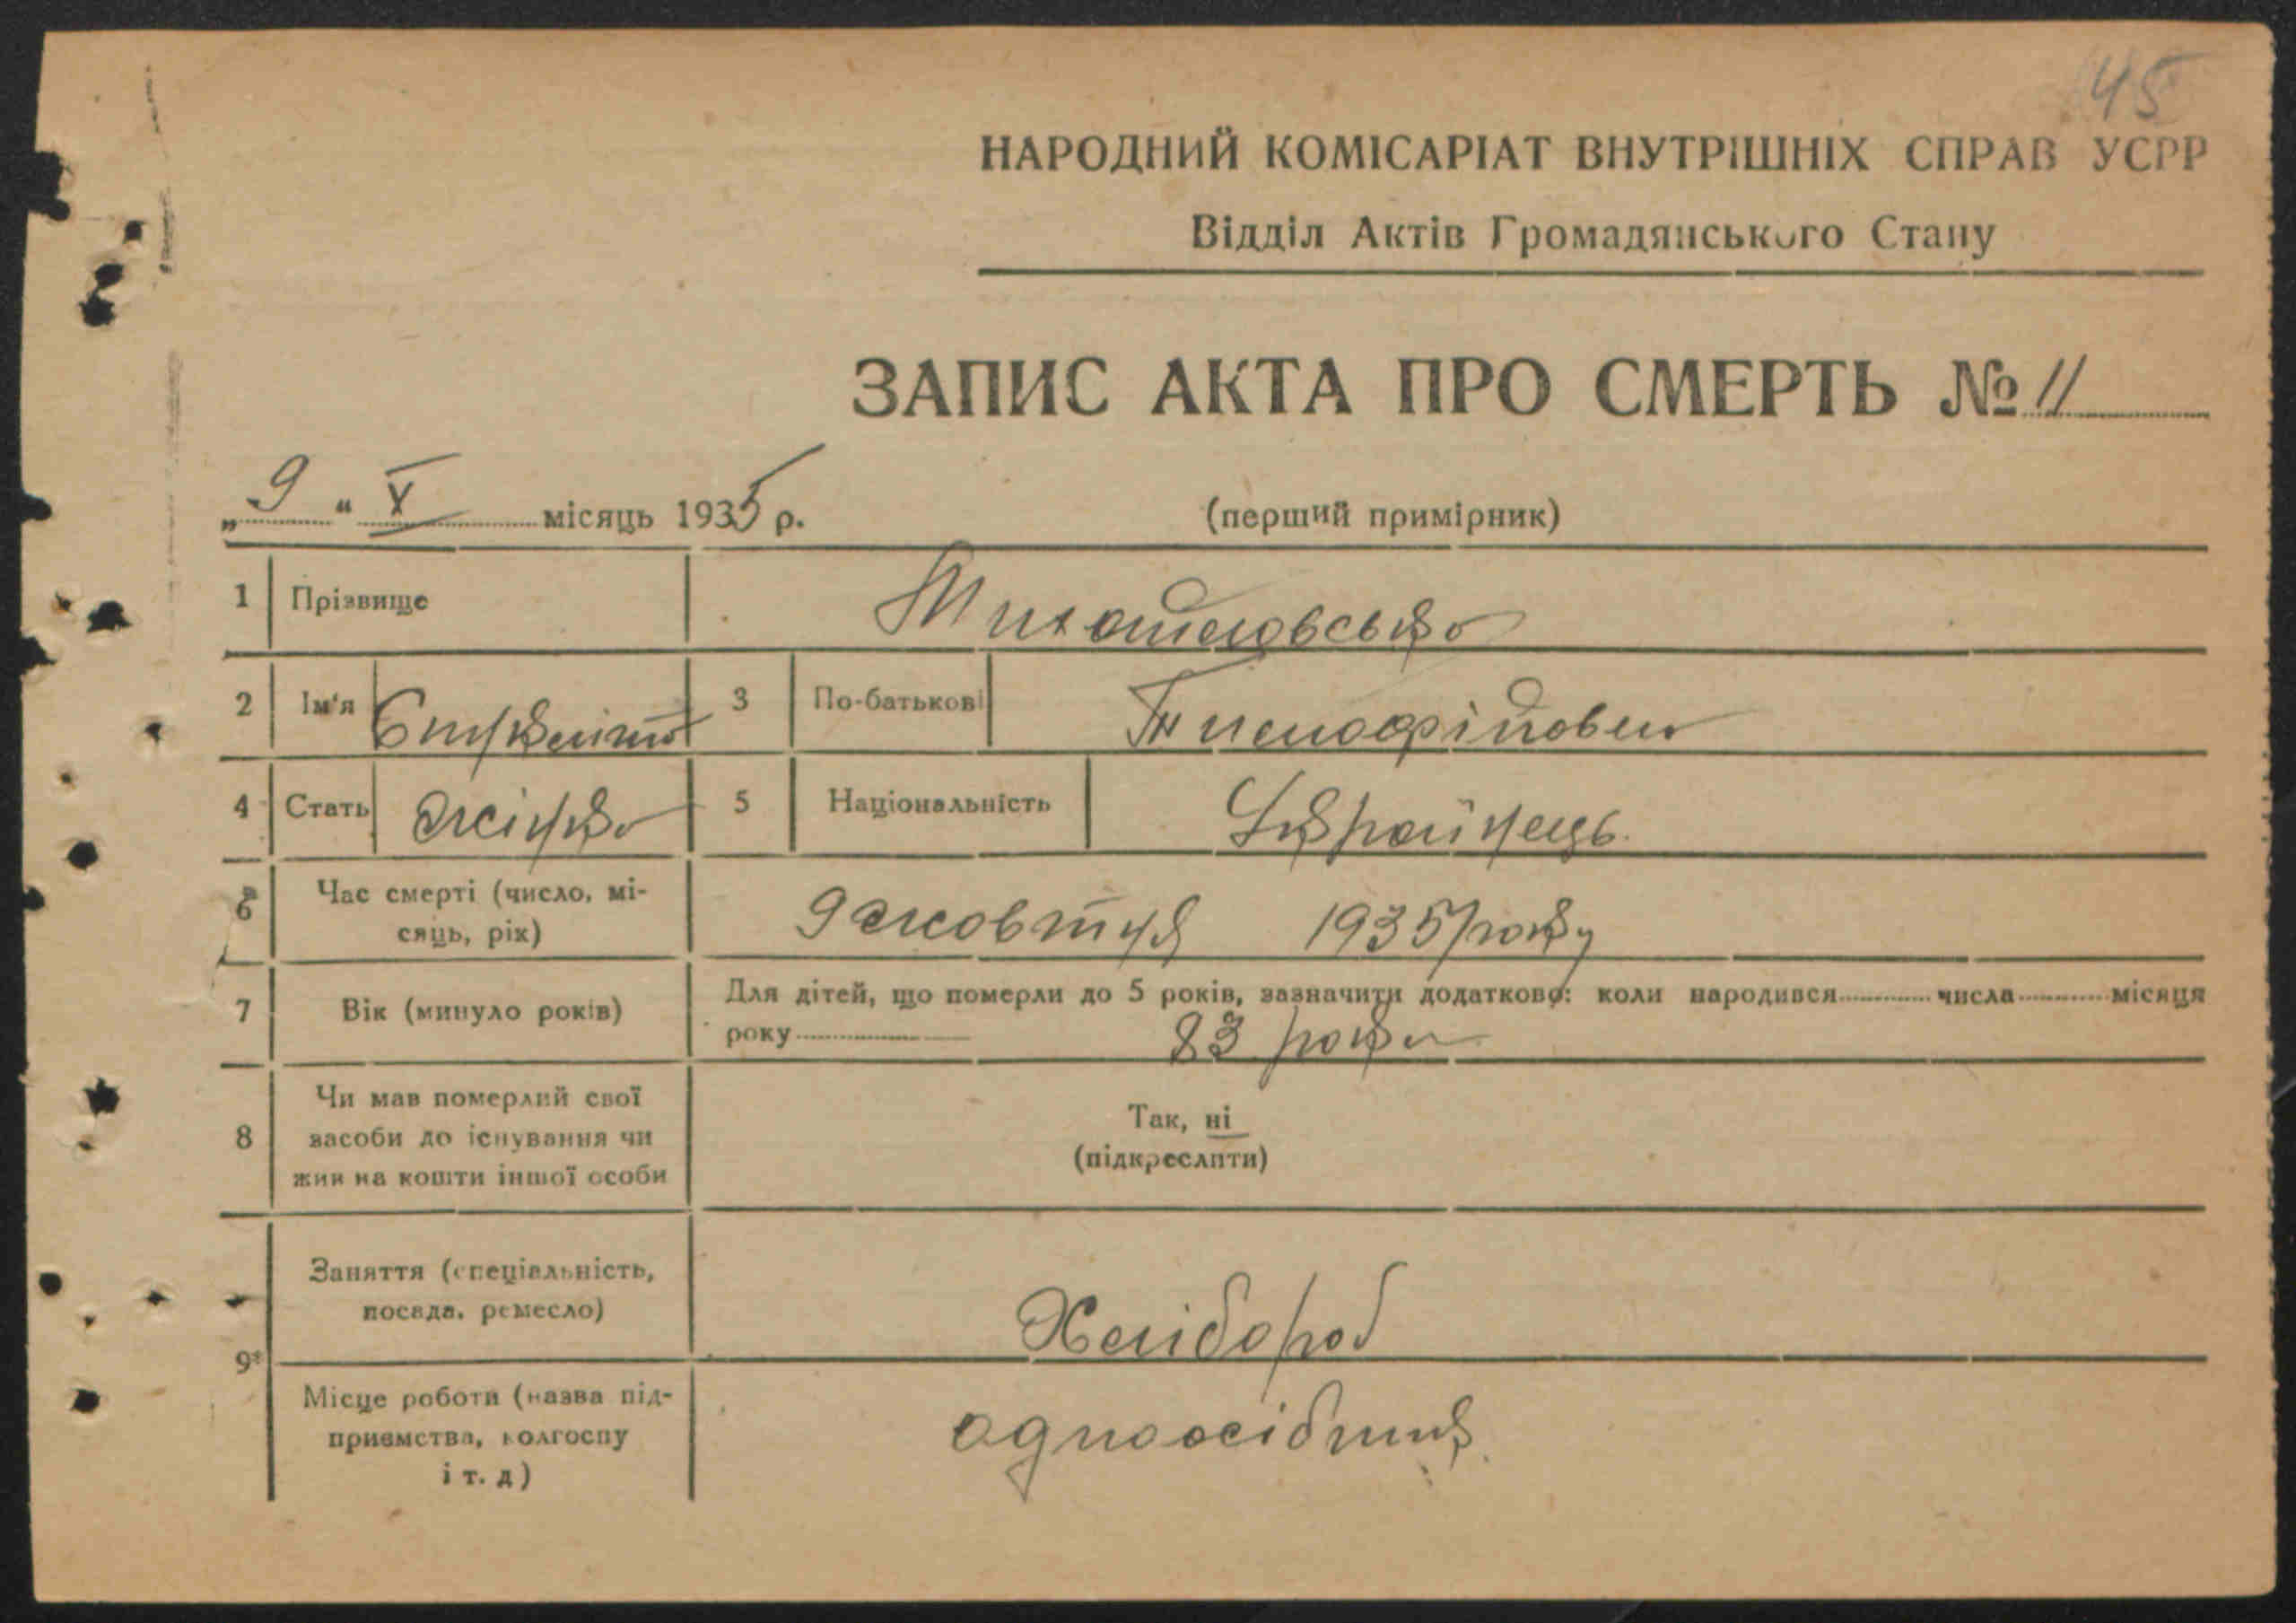 45
НАРОДНИЙ КОМІСАРІАТ ВНУТРІШНІХ СПРАВ УСРР
Відділ Актів Громадянського Стану
ЗАПИС АКТА ПРО СМЕРТЬ № 11
„9“ X місяць 1935 р. (перший примірник)
1 Прізвище
2 Ім'я 3 По-батькові
4 Стать жінка 5 Національність Українець.
6 Час смерті (число, мі-
сяць, рік) 9 жовтня 1935 року
7 Вік (минуло років) Для дітей, що померли до 5 років, зазначити додатково: коли народився числа місяця
року 83 роки
8 Чи мав померлий свої
засоби до існування чи
жив на кошти іншої особи Так, ні
(підкреслити)
9* Заняття (спеціальність,
посада, ремесло) Хлібороб
Місце роботи (назва під-
приємства, колгоспу
і т. д) одноосібник